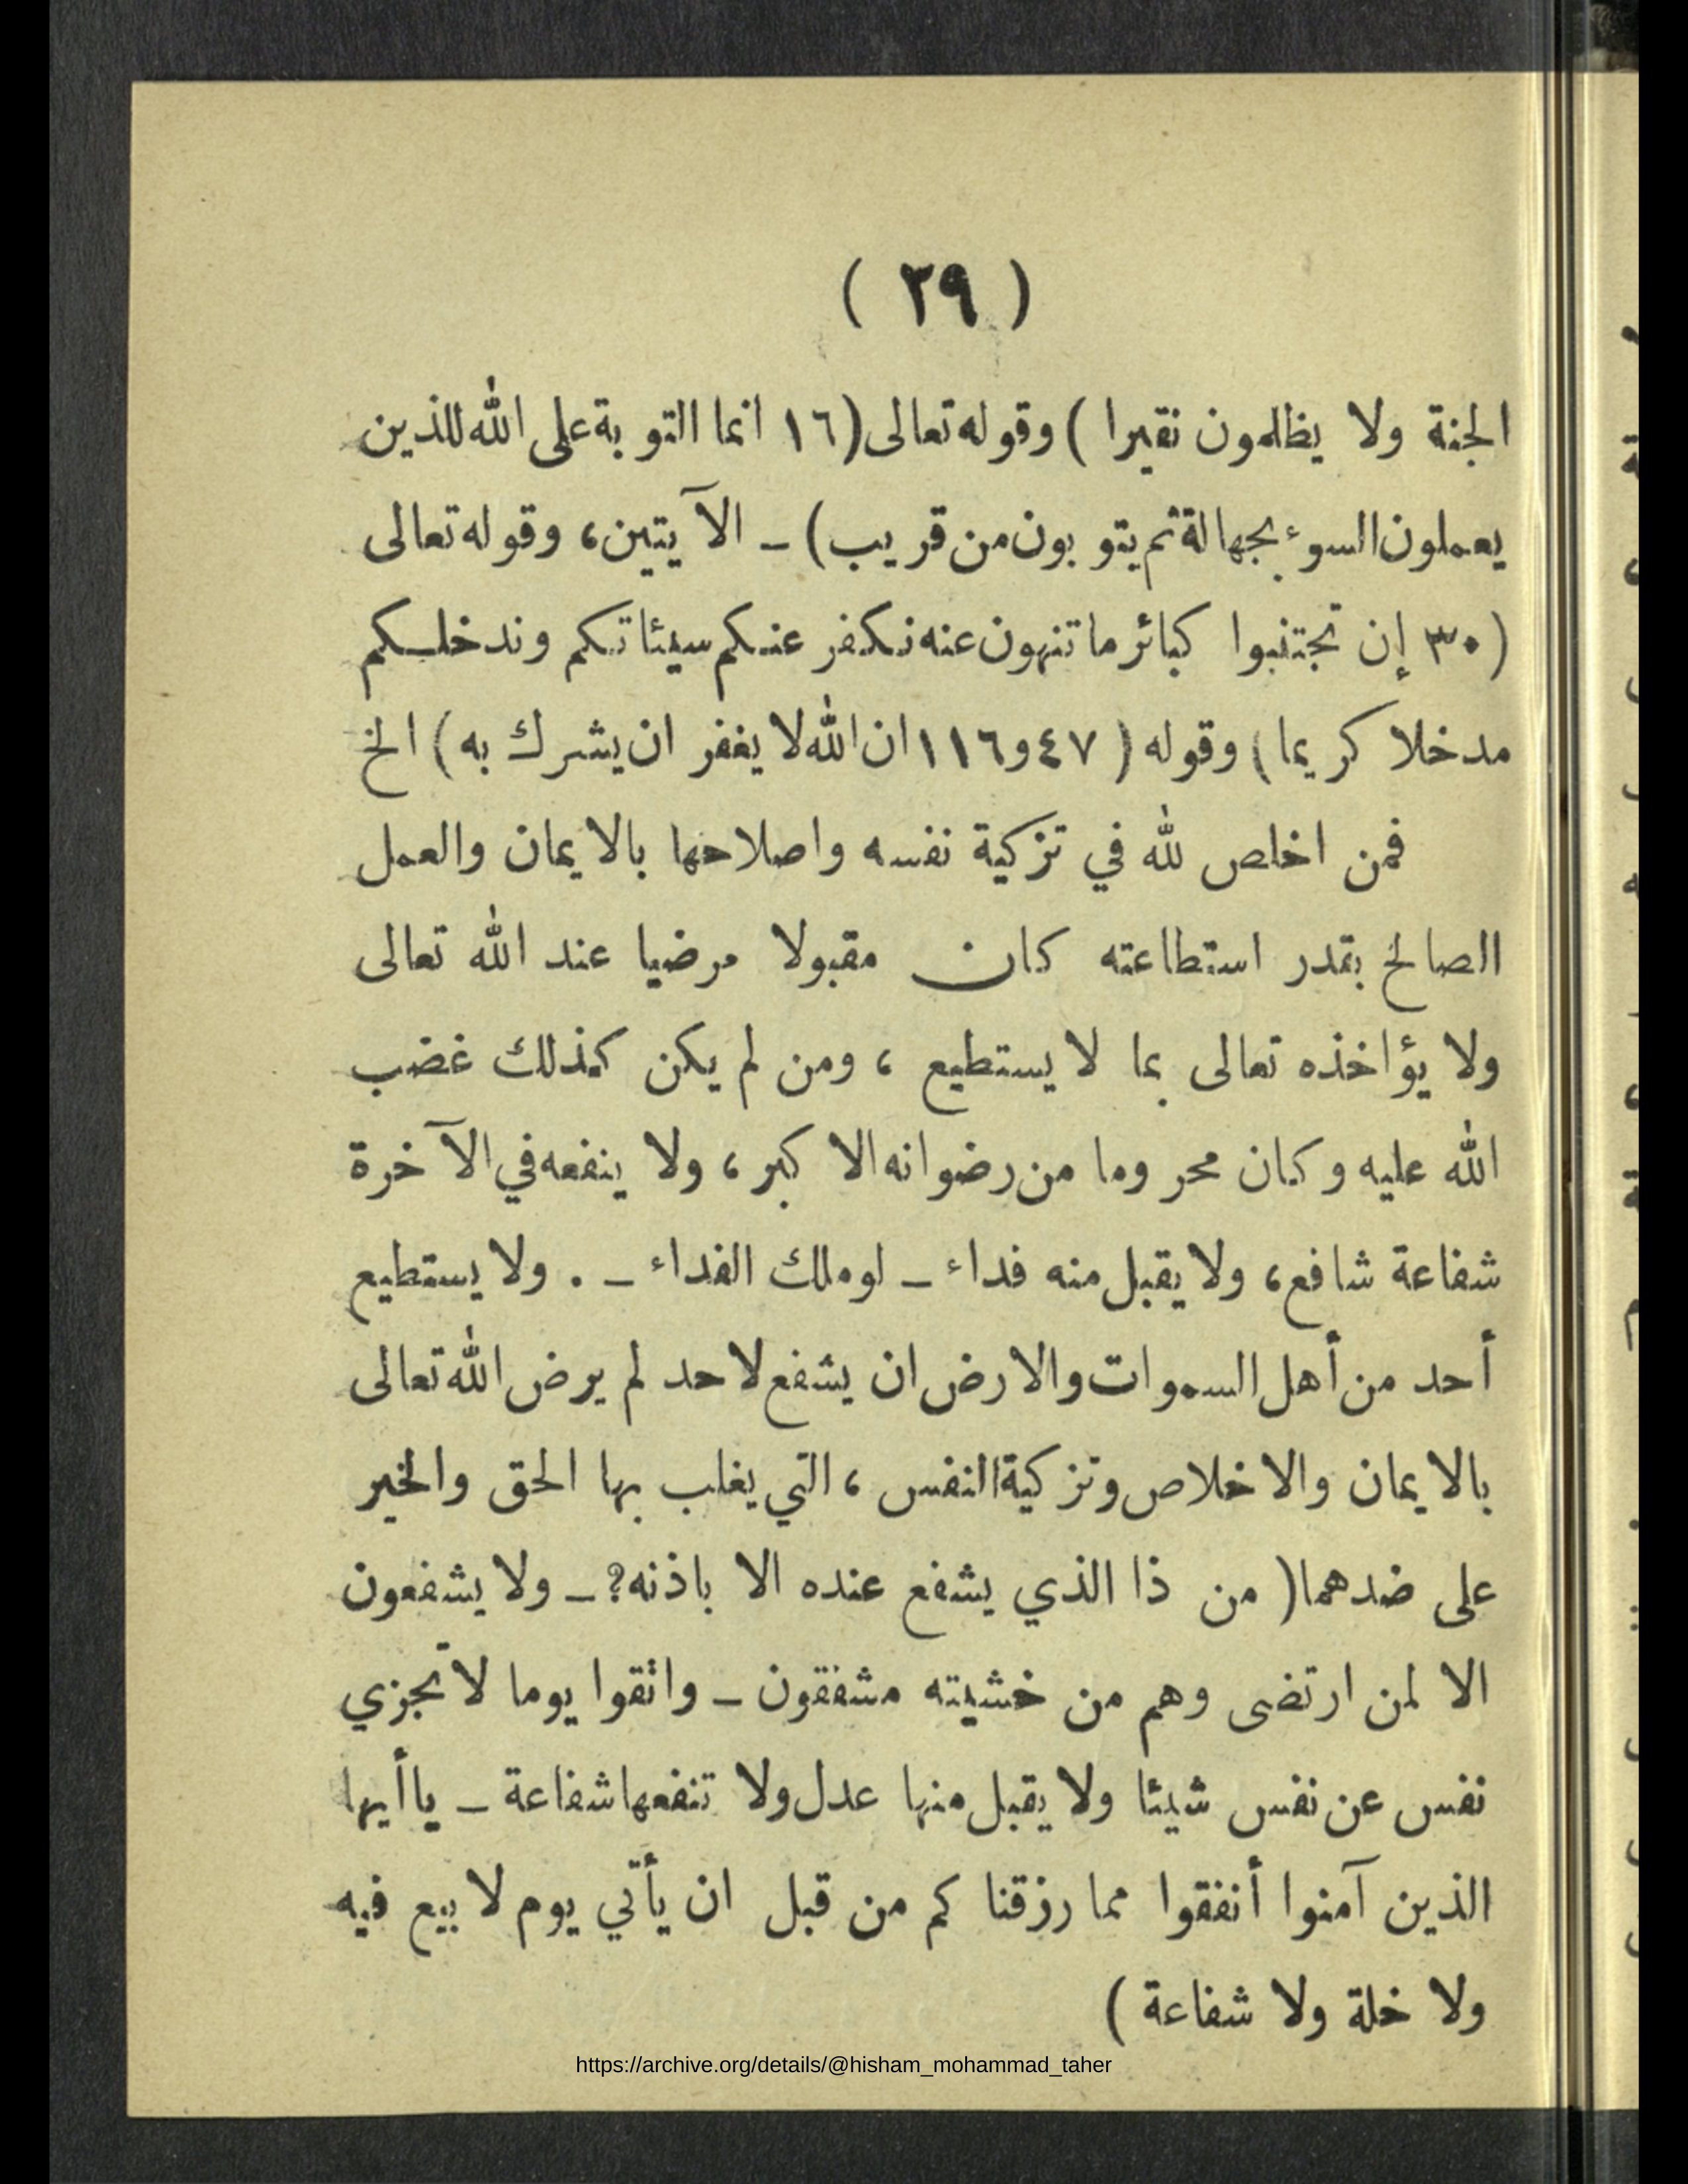 ( ٢٩ )
الجنة ولا يظلمون نقيرا ) وقوله تعالى (١٦ انما التوبة على الله للذين
يعملون السوء بجهالة ثم يتوبون من قريب) ـ الآيتين، وقوله تعالى
(٣٠ إن تجتنبوا كبائر ما تنهون عنه نكفر عنكم سيئاتكم وندخلكم
مدخلا كريما) وقوله ( ٤٧ و١١٦ ان الله لا يغفر ان يشرك به) الخ
فمن اخلص لله في تزكية نفسه واصلاحها بالايمان والعمل
الصالح بقدر استطاعته كان مقبولا مرضيا عند الله تعالى
ولا يؤاخذه تعالى بما لا يستطيع ، ومن لم يكن كذلك غضب
الله عليه وكان محروما من رضوانه الاكبر، ولا ينفعه في الآخرة
شفاعة شافع، ولا يقبل منه فداء ـ لو ملك الفداء ـ . ولا يستطيع
أحد من أهل السموات والارض ان يشفع لاحد لم يرض الله تعالى
بالايمان والاخلاص وتزكية النفس ، التي يغلب بها الحق والخير
على ضدهما( من ذا الذي يشفع عنده الا باذنه؟ ـ ولا يشفعون
الا لمن ارتضى وهم من خشيته مشفقون ـ واتقوا يوما لا تجزي
نفس عن نفس شيئا ولا يقبل منها عدل ولا تنفعها شفاعة ـ يا أيها
الذين آمنوا أنفقوا مما رزقناكم من قبل ان يأتي يوم لا بيع فيه
ولا خلة ولا شفاعة )
https://archive.org/details/@hisham_mohammad_taher